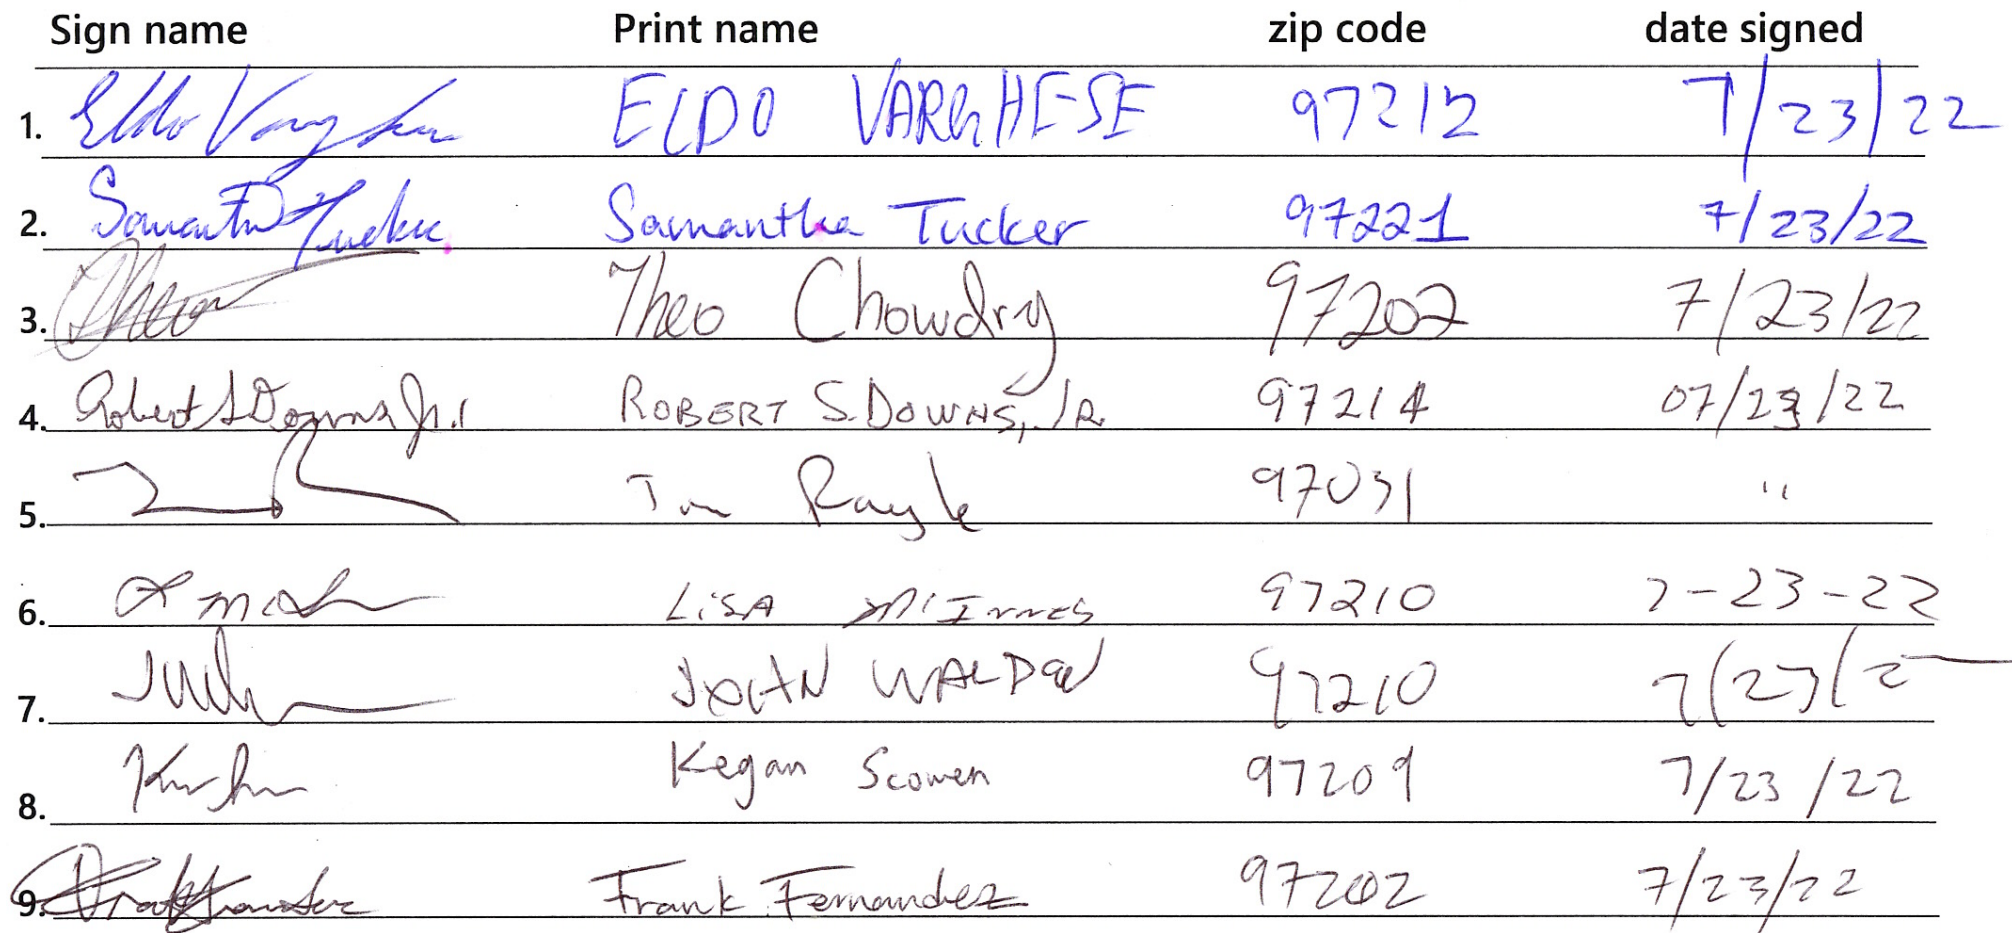 Sign name Print name zip code date signed
1. Eldo Varghese ELDO VARGHESE 97212 7/23/22
2. Samantha Tucker Samantha Tucker 97221 7/23/22
3. Theo Theo Chowdry 97202 7/23/22
4. Robert S Downs Jr. ROBERT S. DOWNS, JR. 97214 07/23/22
5. Rayle 97031 "
6. LiSA McInnes 97210 7-23-22
7. JOHN WALDEN 97210 7/23/2
8. Kegan Scowen 97209 7/23/22
9. Frank Fernandez Frank Fernandez 97202 7/23/22